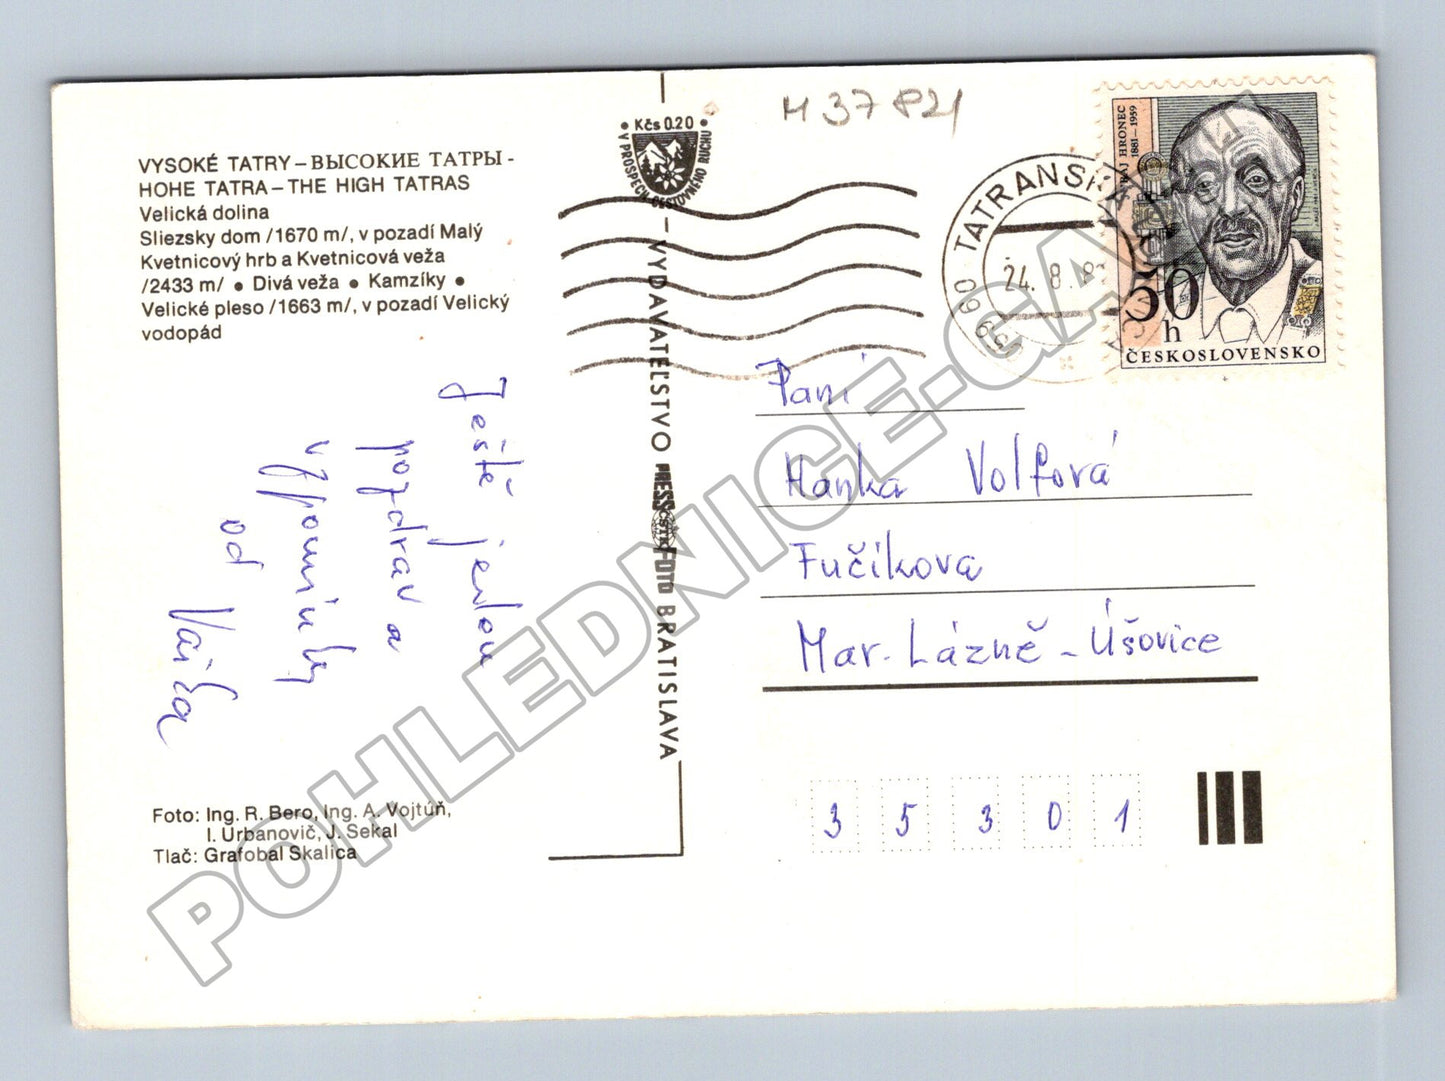 VYSOKÉ TATRY – ВЫСОКИЕ ТАТРЫ -
HOHE TATRA – THE HIGH TATRAS
Velická dolina
Sliezsky dom /1670 m/, v pozadí Malý
Kvetnicový hrb a Kvetnicová veža
/2433 m/ • Divá veža • Kamzíky •
Velické pleso /1663 m/, v pozadí Velický
vodopád
Ještě jednou
pozdrav a
vzpomínky
od
Foto: Ing. R. Bero, Ing. A. Vojtúň,
I. Urbanovič, J. Sekal
Tlač: Grafobal Skalica
• Kčs 0.20 •
V PROSPECH CESTOVNÉHO RUCHU
VYDAVATEĽSTVO PRESSFOTO BRATISLAVA
ČSTK
M 37 821
059 60 TATRANSKÁ
24. 8. 8
HRONEC
1881–1959
50
h
ČESKOSLOVENSKO
Paní
Hanka Volfová
Fučíkova
Mar. Lázně - Úšovice
3 5 3 0 1
POHLEDNICE-GALERIE.CZ